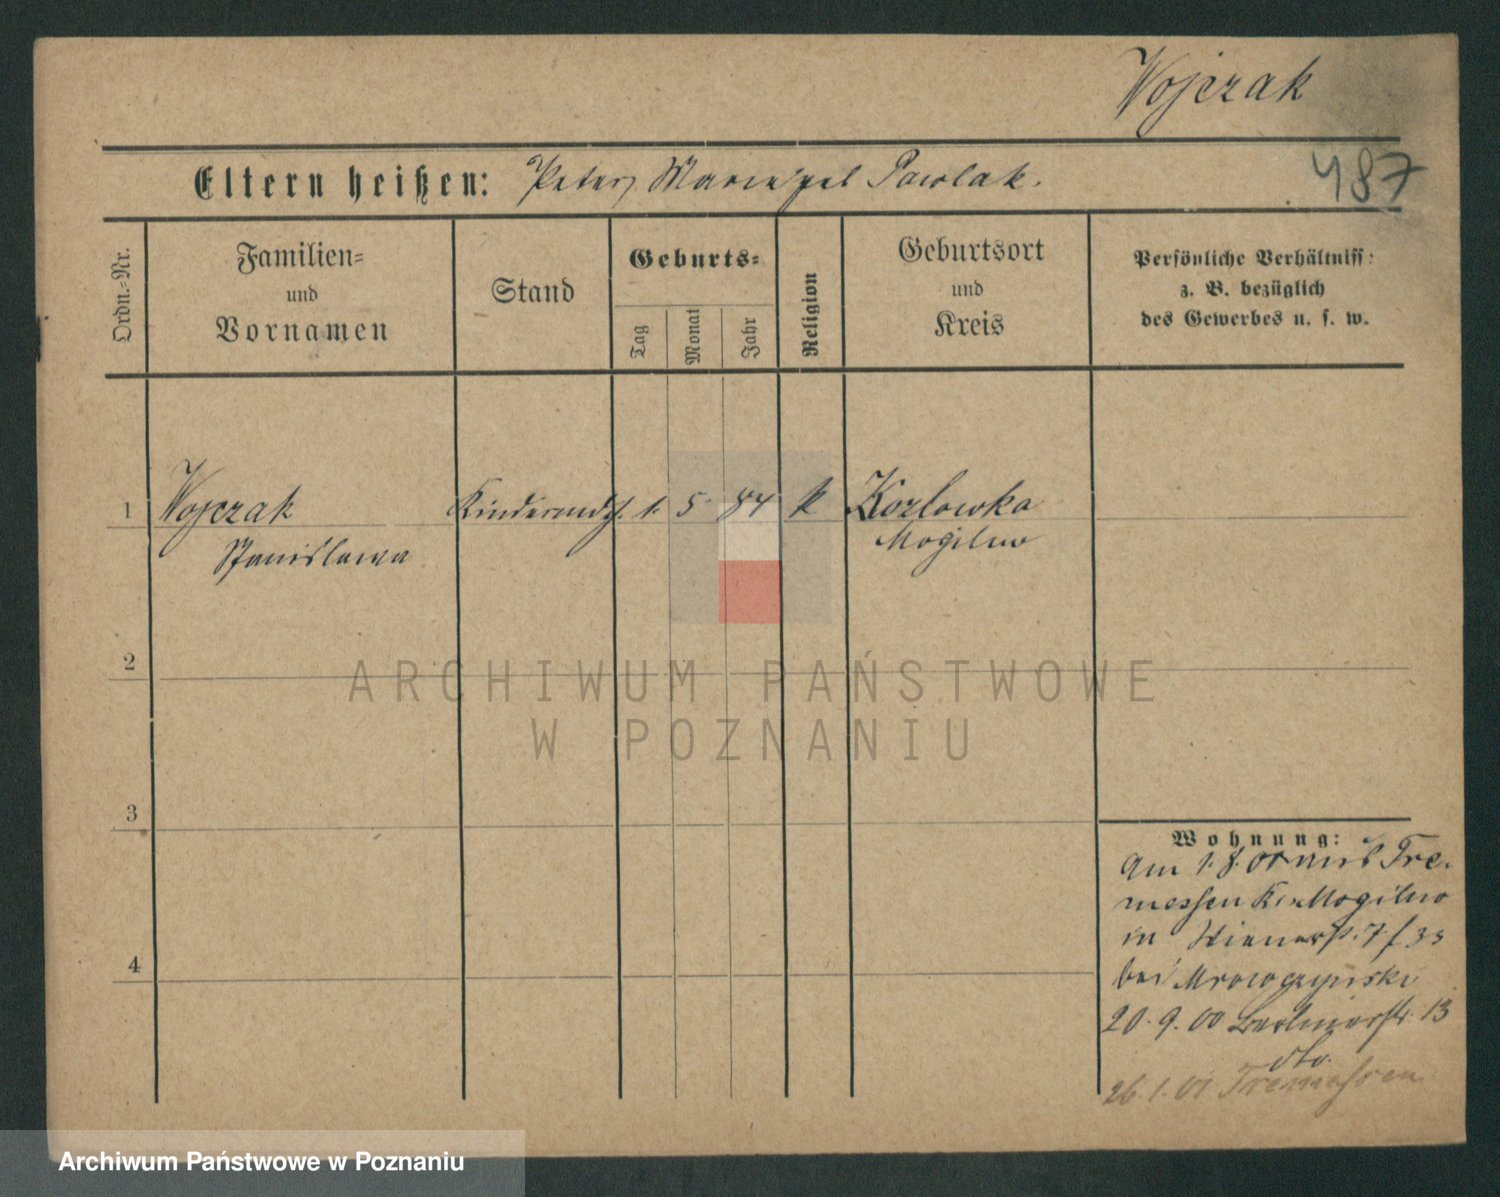 Wojczak
Eltern heißen: Peter, Marie geb Pawlak.
487
Ordn.-Nr.
Familien-
und
Vornamen
Stand
Geburts-
Tag
Monat
Jahr
Religion
Geburtsort
und
Kreis
Persönliche Verhältniss:
z. B. bezüglich
des Gewerbes u. s. w.
1 Wojczak 1. 5 84 k Kozlowka
Stanislawa Mogilno
2
3
4
Wohnung:
Am 1. 8. 00 aus Tre-
messen Kr. Mogilno
in Wienerstr. 7
bei Mrowczynski
20. 9. 00 Berlinerstr. 13
dto.
26. 1. 01 Tremessen
ARCHIWUM PAŃSTWOWE
W POZNANIU
Archiwum Państwowe w Poznaniu